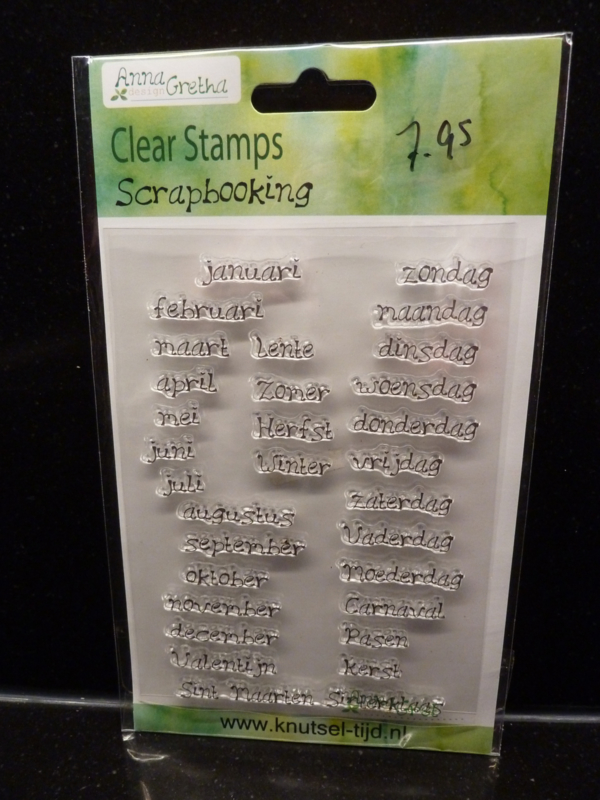 Anna
design Gretha
Clear Stamps
7.95
Scrapbooking
januari
zondag
februari
maandag
maart
Lente
dinsdag
april
Zomer
woensdag
mei
Herfst
donderdag
juni
Winter
vrijdag
juli
zaterdag
augustus
Vaderdag
september
Moederdag
oktober
november
Carnaval
december
Pasen
Valentijn
Kerst
Sint Maarten Sinterklaas
www.knutsel-tijd.nl